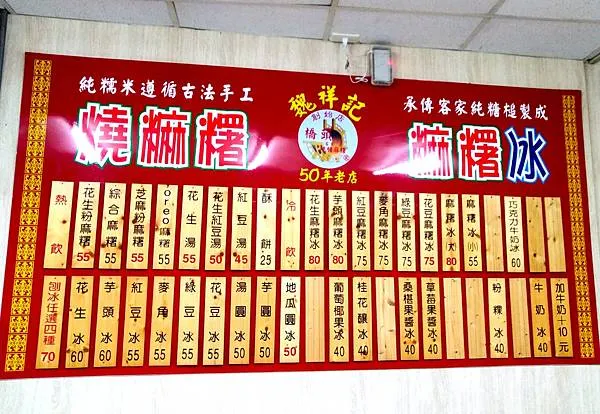 純糯米遵循古法手工
燒麻糬
魏祥記
創始店
橋頭
50年老店
承傳客家純糖槌製成
麻糬冰
熱飲
花生粉麻糬 55
綜合麻糬 55
芝麻粉麻糬 55
oreo麻糬 55
花生湯 55
花生紅豆湯 50
紅豆湯 45
酥餅 25
冷飲
花生麻糬冰 80
芋頭麻糬冰 80
紅豆麻糬冰 75
麥角麻糬冰 75
綠豆麻糬冰 75
花豆麻糬冰 75
麻糬冰(大) 80
麻糬冰(小) 55
巧克力牛奶冰 60
刨冰任選四種 70
花生冰 60
芋頭冰 60
紅豆冰 55
麥角冰 55
綠豆冰 55
花豆冰 55
湯圓冰 50
芋圓冰 50
地瓜圓冰 50
葡萄椰果冰 40
桂花釀冰 40
桑椹果醬冰 40
草莓果醬冰 40
粉粿冰 40
牛奶冰 40
加牛奶+10元